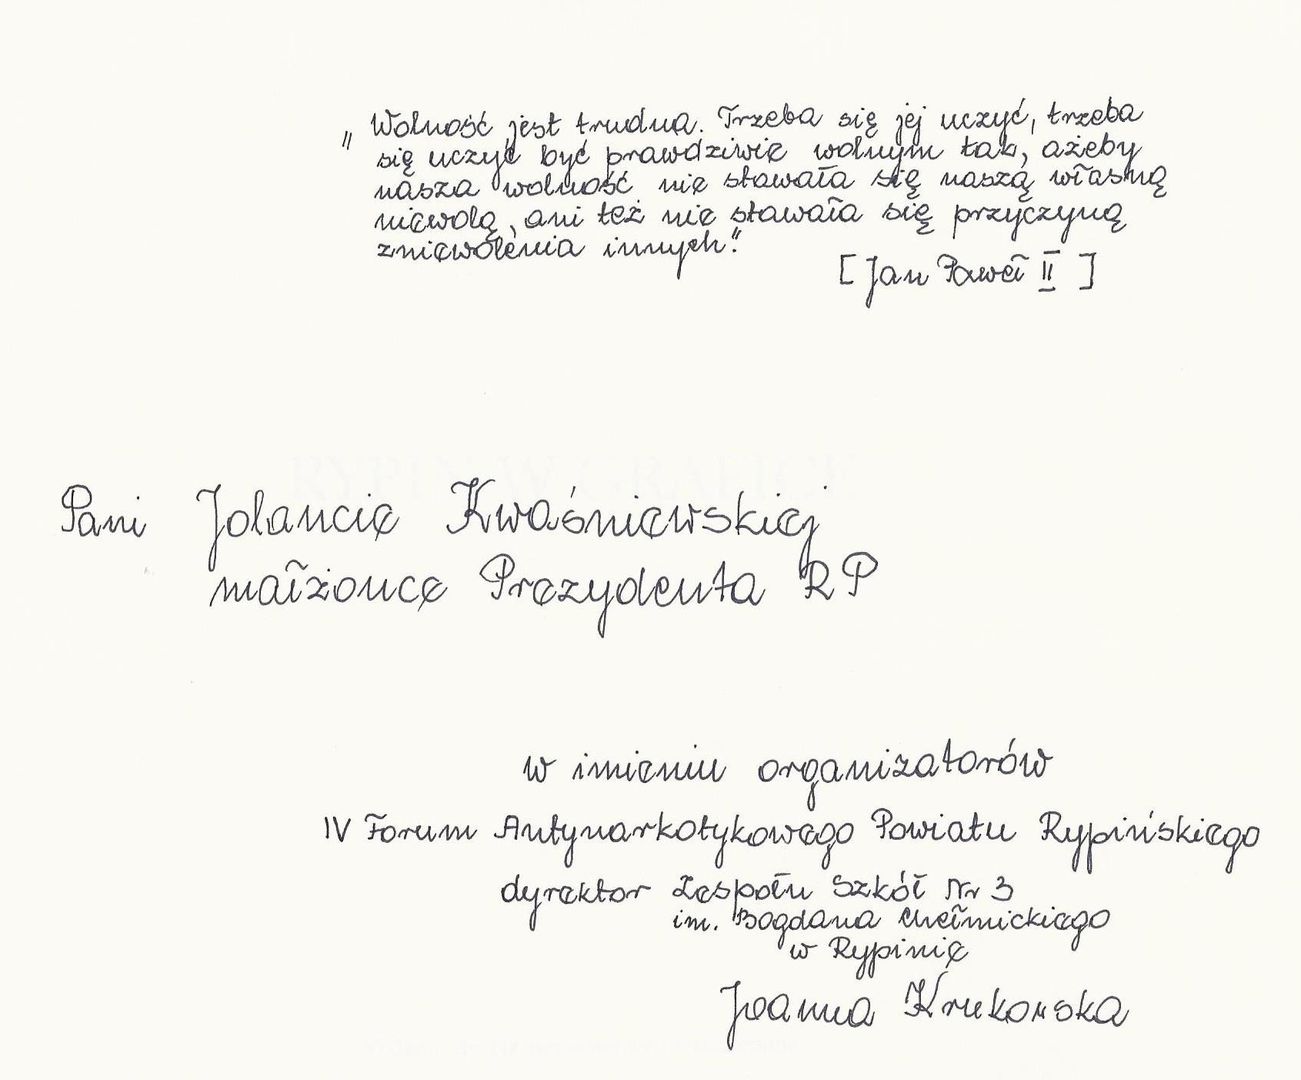 „Wolność jest trudna. Trzeba się jej uczyć, trzeba
się uczyć być prawdziwie wolnym tak, ażeby
nasza wolność nie stawała się naszą własną
niewolą, ani też nie stawała się przyczyną
zniewolenia innych."
[Jan Paweł II]
RYPIN W GRAFICE
Pani Jolancie Kwaśniewskiej
małżonce Prezydenta RP
w imieniu organizatorów
IV Forum Antynarkotykowego Powiatu Rypińskiego
dyrektor Zespołu Szkół Nr 3
im. Bogdana Chełmickiego
w Rypinie
Joanna Krukowska